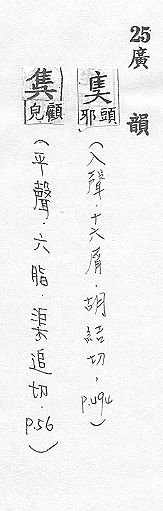 25廣韻
奊
頭邪
(入聲.十六屑.胡結切,p.494)
顧皃
(平聲.六脂.渠追切.p.56)